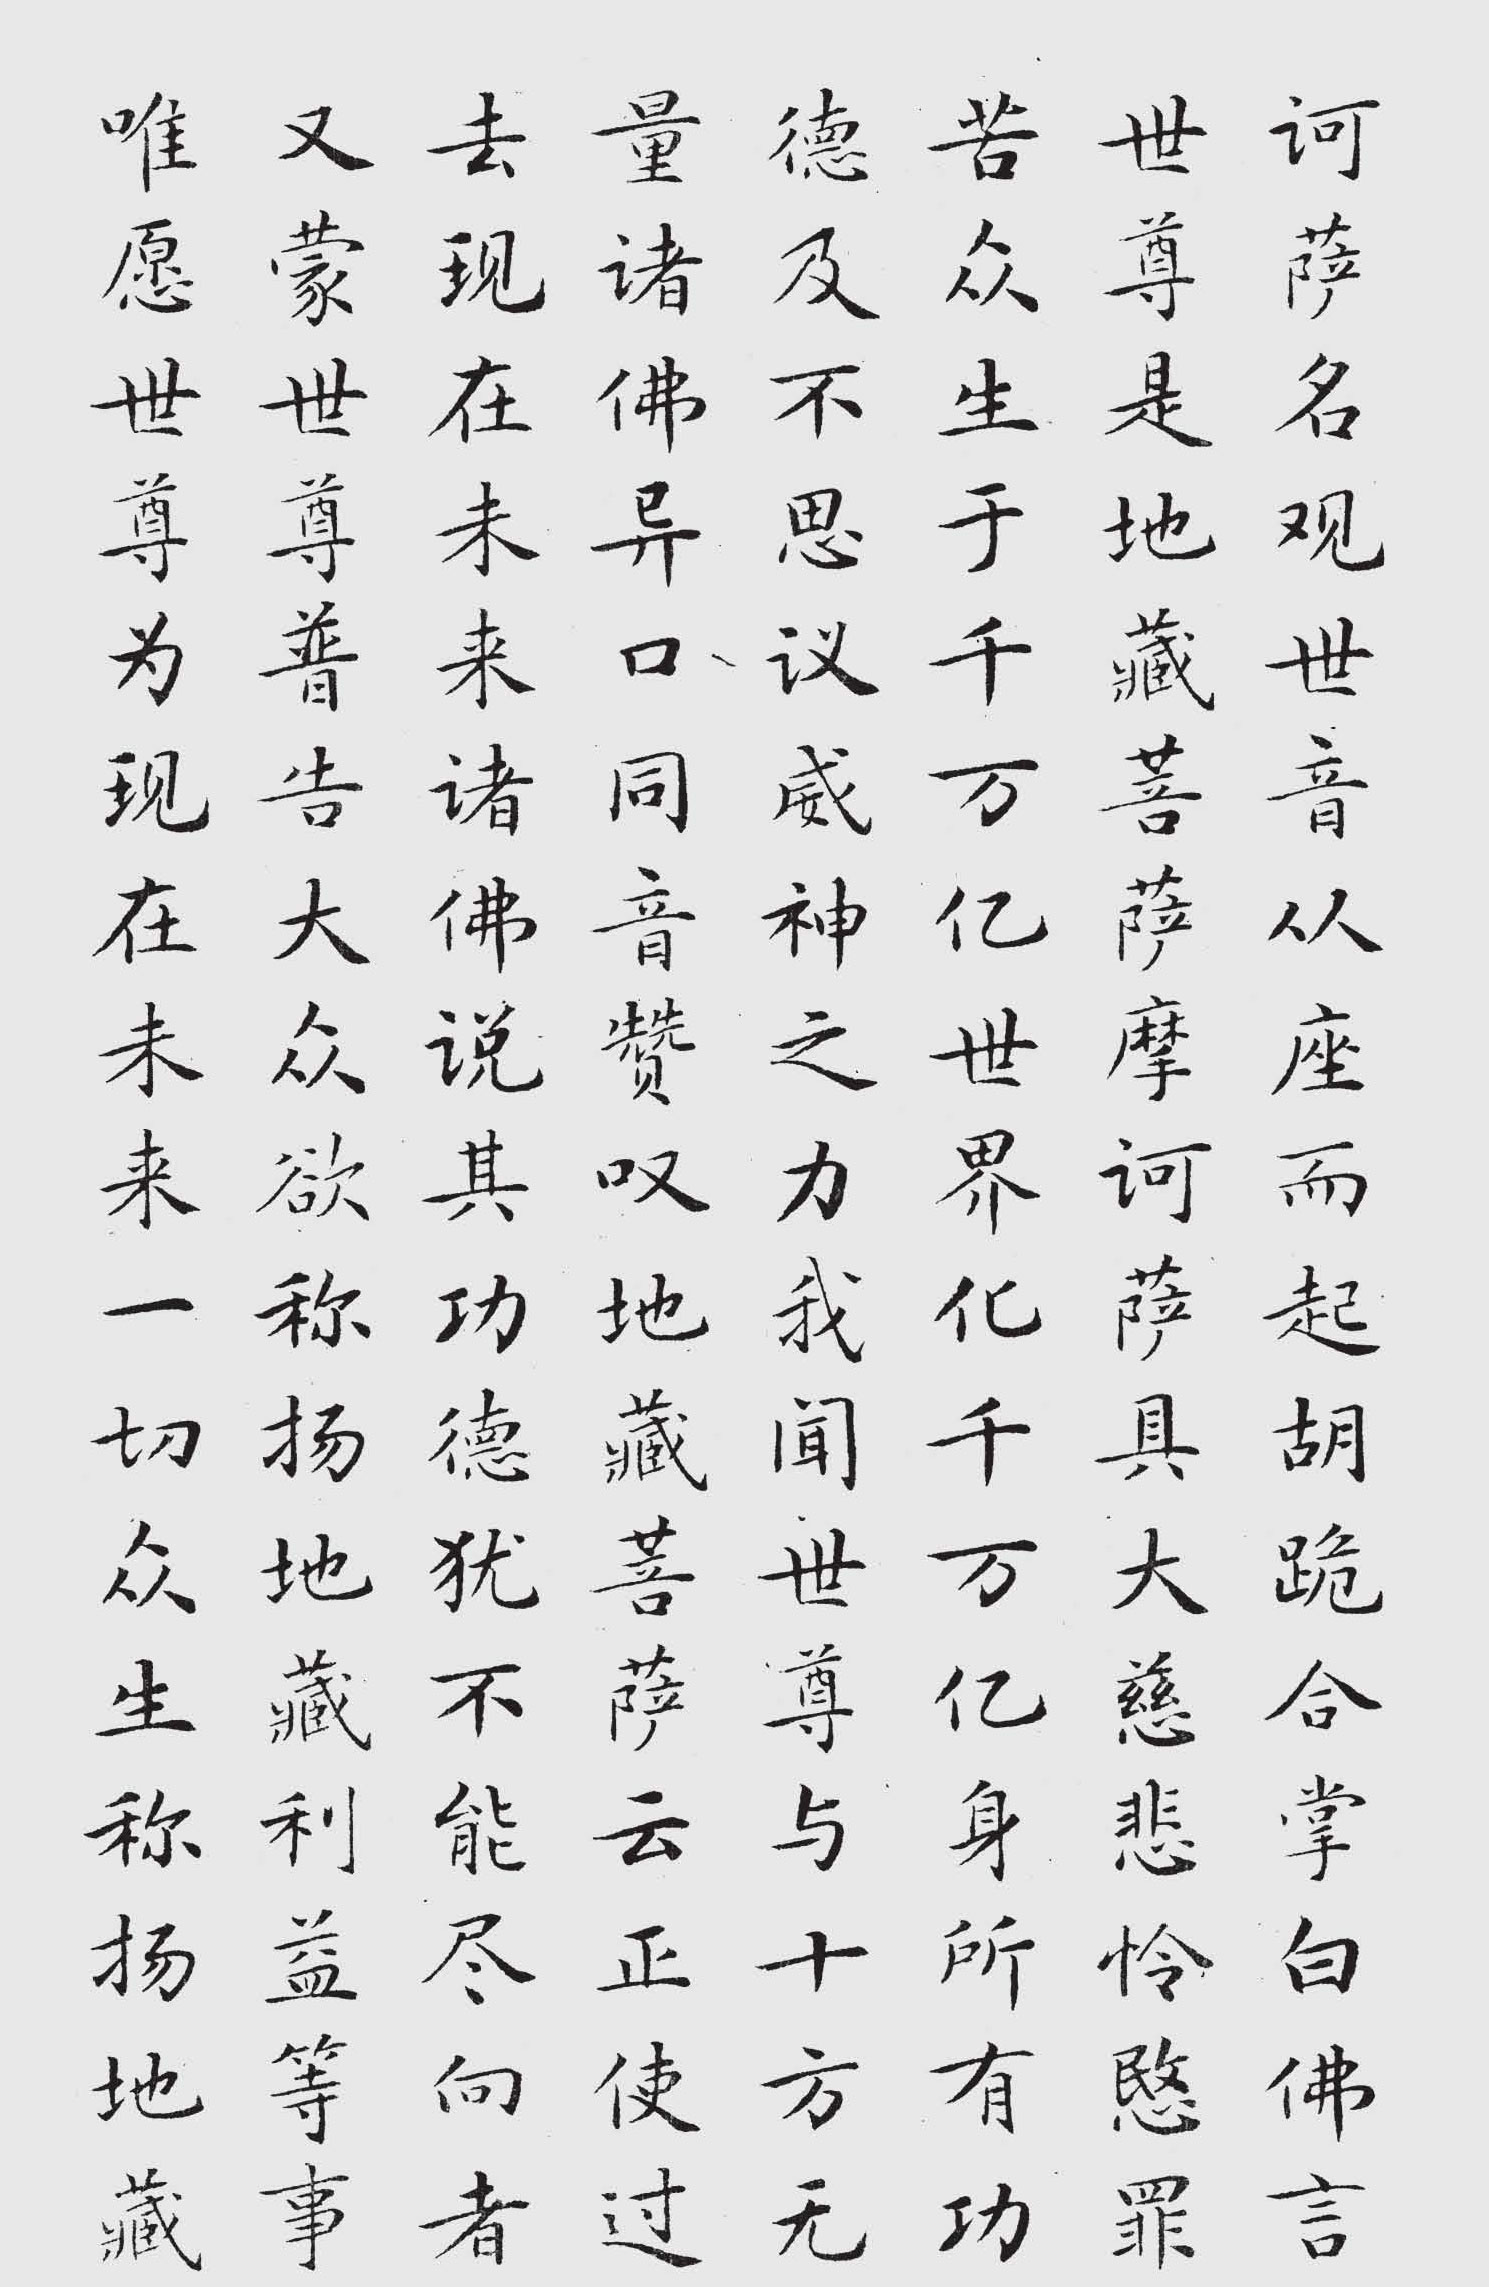 诃萨名观世音从座而起胡跪合掌白佛言
世尊是地藏菩萨摩诃萨具大慈悲怜愍罪
苦众生于千万亿世界化千万亿身所有功
德及不思议威神之力我闻世尊与十方无
量诸佛异口同音赞叹地藏菩萨云正使过
去现在未来诸佛说其功德犹不能尽向者
又蒙世尊普告大众欲称扬地藏利益等事
唯愿世尊为现在未来一切众生称扬地藏